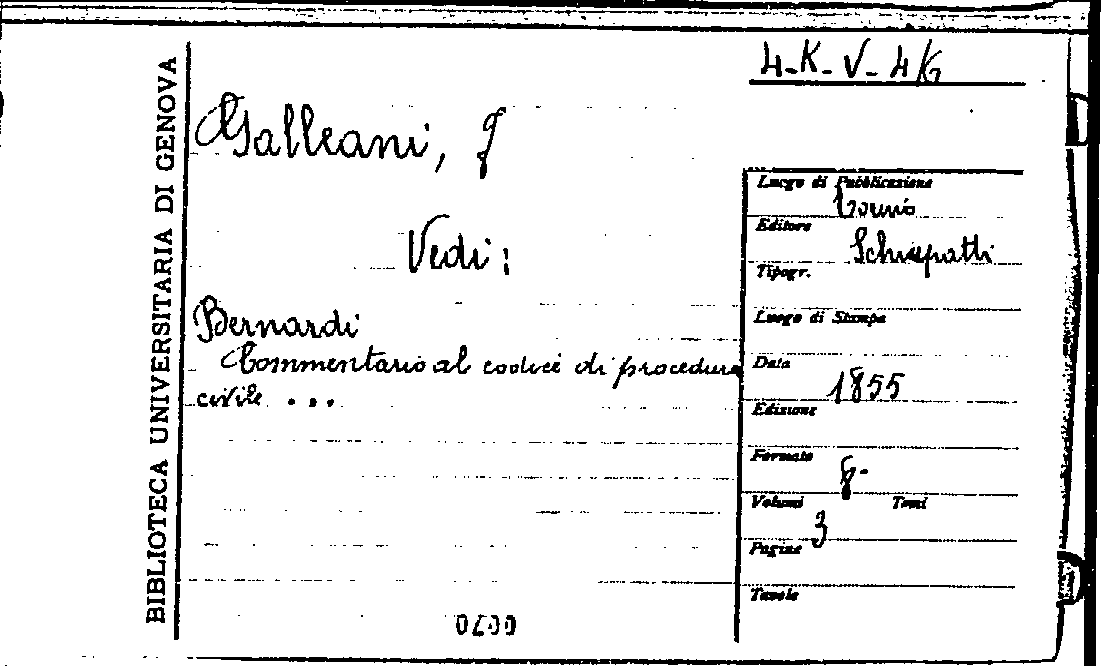 BIBLIOTECA UNIVERSITARIA DI GENOVA
4-K-V-4/G
Galleani, G
Vedi:
Bernardi
Commentario al codice di procedura
civile ...
Luogo di Pubblicazione
Torino
Editore
Schiepatti
Tipogr.
Luogo di Stampa
Data
1855
Edizione
Formato
8-
Volumi Tomi
3
Pagine
Tavole